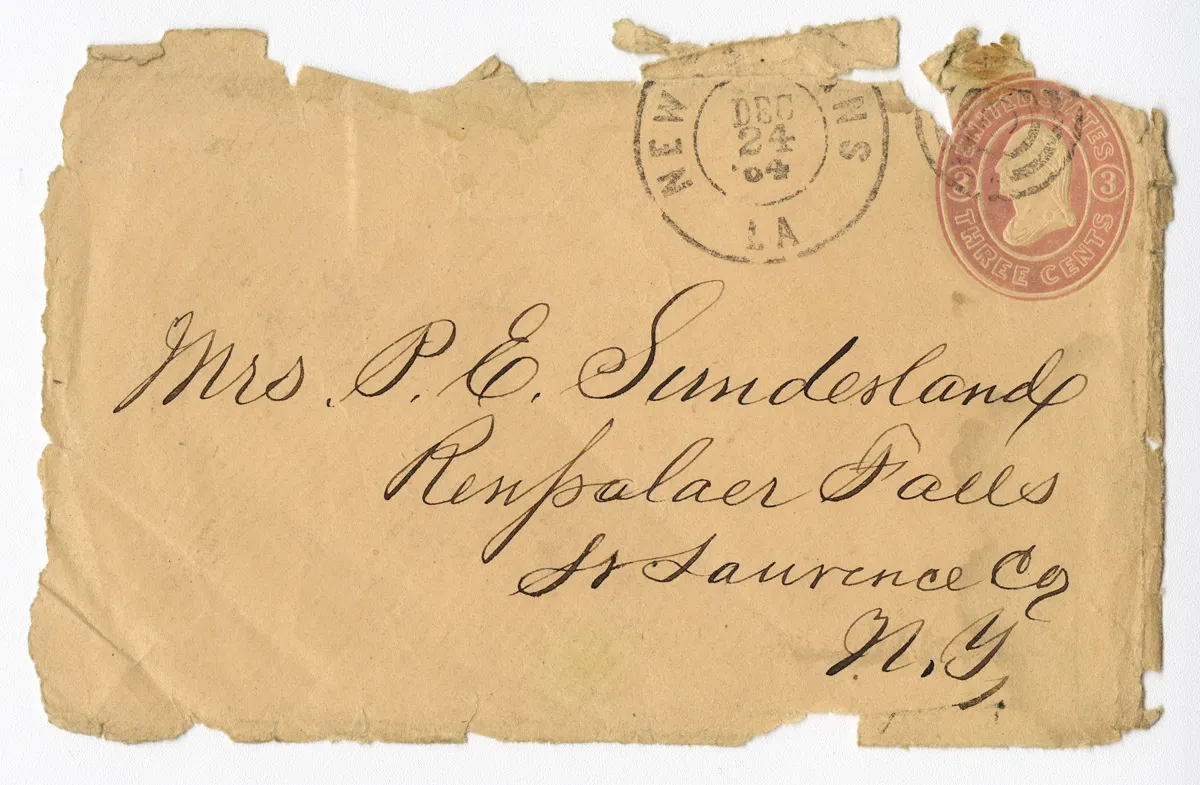 NEW NS
DEC
24
'64
LA
UNITED STATES
3 3
THREE CENTS
Mrs. P. E. Sunderland
Renſsalaer Falls
St Lawrence Co
N. Y.